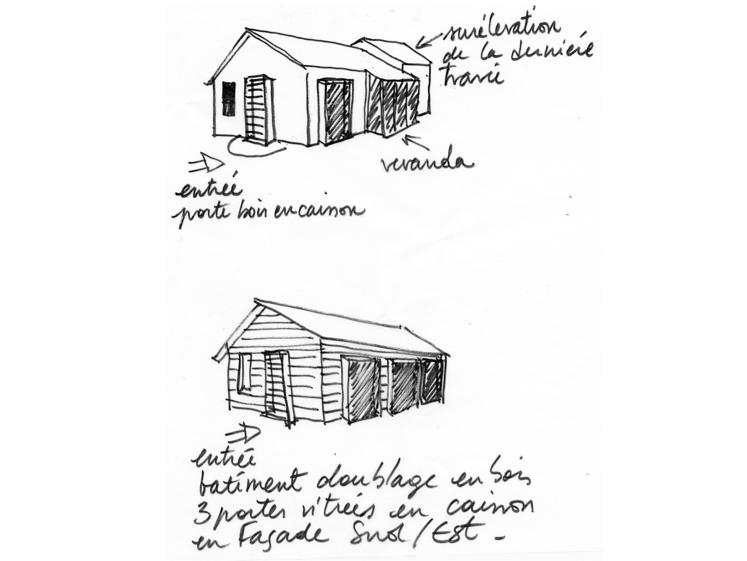 surélevation
de la dernière
travée
veranda
entrée
porte bois en caisson
entrée
batiment doublage en bois
3 portes vitrées en caisson
en Façade Sud/Est -